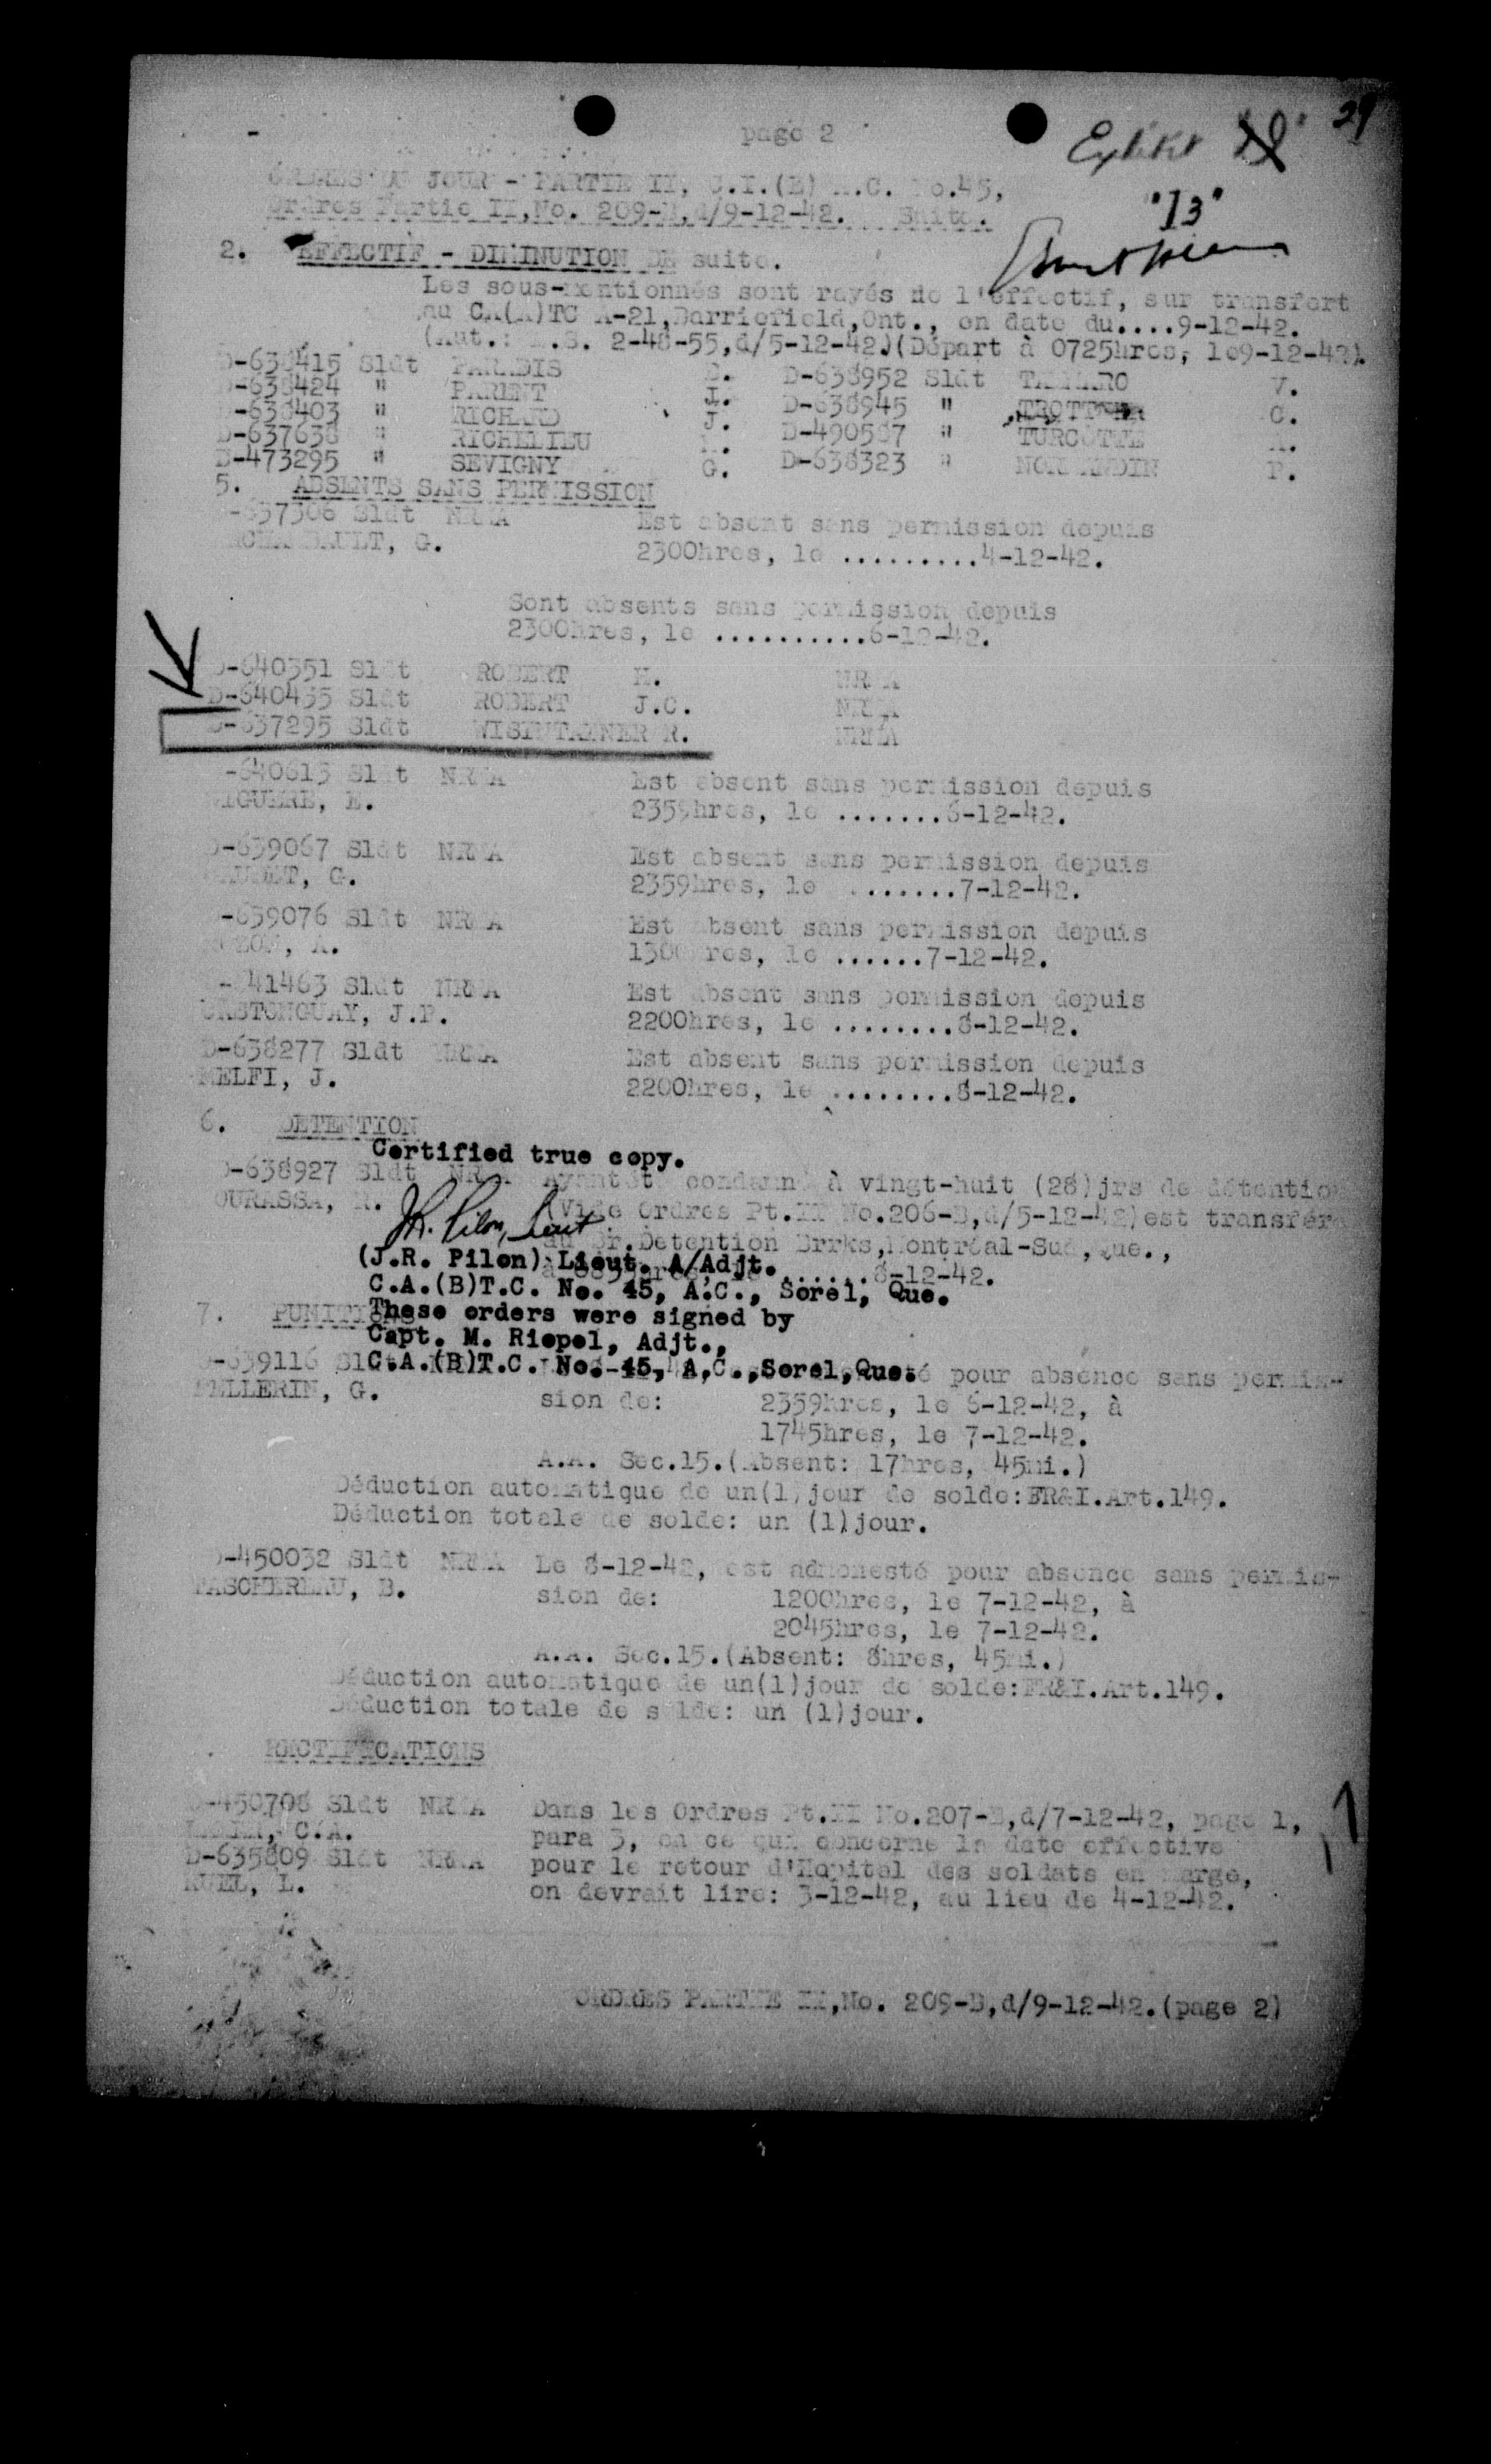 29
page 2
Exhibit
"13"
ORDRES DU JOUR - PARTIE II, C.I.(B) A.C. No.45,
Ordres Partie II,No. 209-B,d/9-12-42. Suite.
2. EFFECTIF - DIMINUTION DE suite.
Les sous-mentionnés sont rayés de l'effectif, sur transfert
au CA(A)TC A-21,Barriefield,Ont., en date du....9-12-42.
(Aut.: .S. 2-48-55,d/5-12-42.)(Départ à 0725hres, le9-12-42).
D-638415 Sldt PARADIS D-638952 Sldt V.
D-638424 " PARENT D-638945 " C.
D-638403 " RICHARD J. D-490587 " TURCOTTE
D-637638 " RICHELIEU D-638323 " NORMANDIN
D-473295 " SEVIGNY G.
5. ABSENTS SANS PERMISSION
-637306 Sldt NRMA Est absent sans permission depuis
ARCHAMBAULT, G. 2300hres, le .........4-12-42.
Sont absents sans permission depuis
2300hres, le ..........6-12-42.
D-640351 Sldt ROBERT H. NRMA
D-640435 Sldt ROBERT J.C. NRMA
D-637295 Sldt WISINTAINER R. NRMA
-640615 Sldt NRMA Est absent sans permission depuis
VIGUERE, E. 2359hres, le .......6-12-42.
D-639067 Sldt NRMA Est absent sans permission depuis
G. 2359hres, le .......7-12-42.
-639076 Sldt NRMA Est absent sans permission depuis
A. 1300hres, le ......7-12-42.
-641463 Sldt NRMA Est absent sans permission depuis
CASTONGUAY, J.P. 2200hres, le ........8-12-42.
D-638277 Sldt NRMA Est absent sans permission depuis
MELFI, J. 2200hres, le ........8-12-42.
6. DETENTION
Certified true copy.
D-638927 Sldt NRMA Ayant été condamné à vingt-huit (28)jrs de détention
BOURASSA, R. (Vide Ordres Pt.II No.206-B,d/5-12-42)est transféré
J.R. Pilon, Lieut
au Dr.Detention Brrks,Montréal-Sud,Que.,
(J.R. Pilon) Lieut. A/Adjt.
......8-12-42.
C.A.(B)T.C. No. 45, A.C., Sorel, Que.
7. PUNITIONS
These orders were signed by
Capt. M. Riepel, Adjt.,
C.A.(B)T.C. No. 45, A.C.,Sorel,Que.
D-639116 Sldt pour absence sans permis-
PELLERIN, G. sion de: 2359hres, le 6-12-42, à
1745hres, le 7-12-42.
A.A. Sec.15.(Absent: 17hres, 45mi.)
Déduction automatique de un(1)jour de solde:FR&I.Art.149.
Déduction totale de solde: un (1)jour.
D-450032 Sldt NRMA Le 8-12-42, est admonesté pour absence sans permis-
PASCHEREAU, B. sion de: 1200hres, le 7-12-42, à
2045hres, le 7-12-42.
A.A. Sec.15.(Absent: 8hres, 45mi.)
Déduction automatique de un(1)jour de solde:FR&I.Art.149.
Déduction totale de solde: un (1)jour.
RECTIFICATIONS
D-450708 Sldt NRMA Dans les Ordres Pt.II No.207-B,d/7-12-42, page 1,
C.A. para 3, en ce qui concerne la date effective
D-635809 Sldt NRMA pour le retour d'Hopital des soldats en marge,
RUEL, L. on devrait lire: 3-12-42, au lieu de 4-12-42.
ORDRES PARTIE II,No. 209-B,d/9-12-42.(page 2)